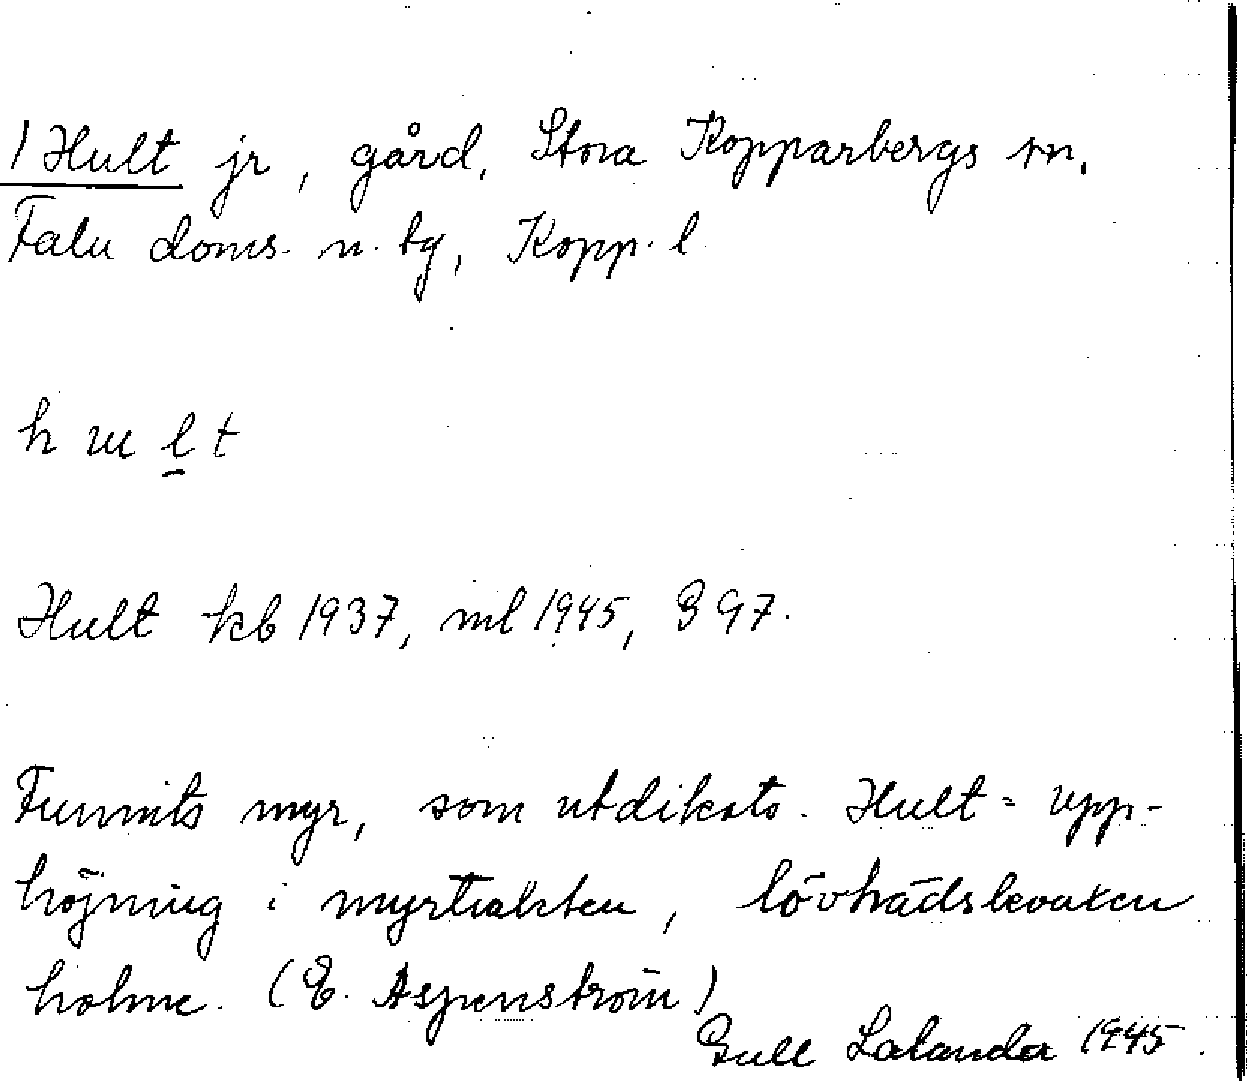 1 Hult jr, gård, Stora Kopparbergs sn,
Falu doms. n. tg, Kopp. l
h u l t
Hult kb 1937, ml 1945, 3 97.
Funnits myr, som utdikats. Hult = upp-
höjning i myrtrakten, lövträdsbevaxen
holme. (E. Aspenström)
Gull Lalander 1945.